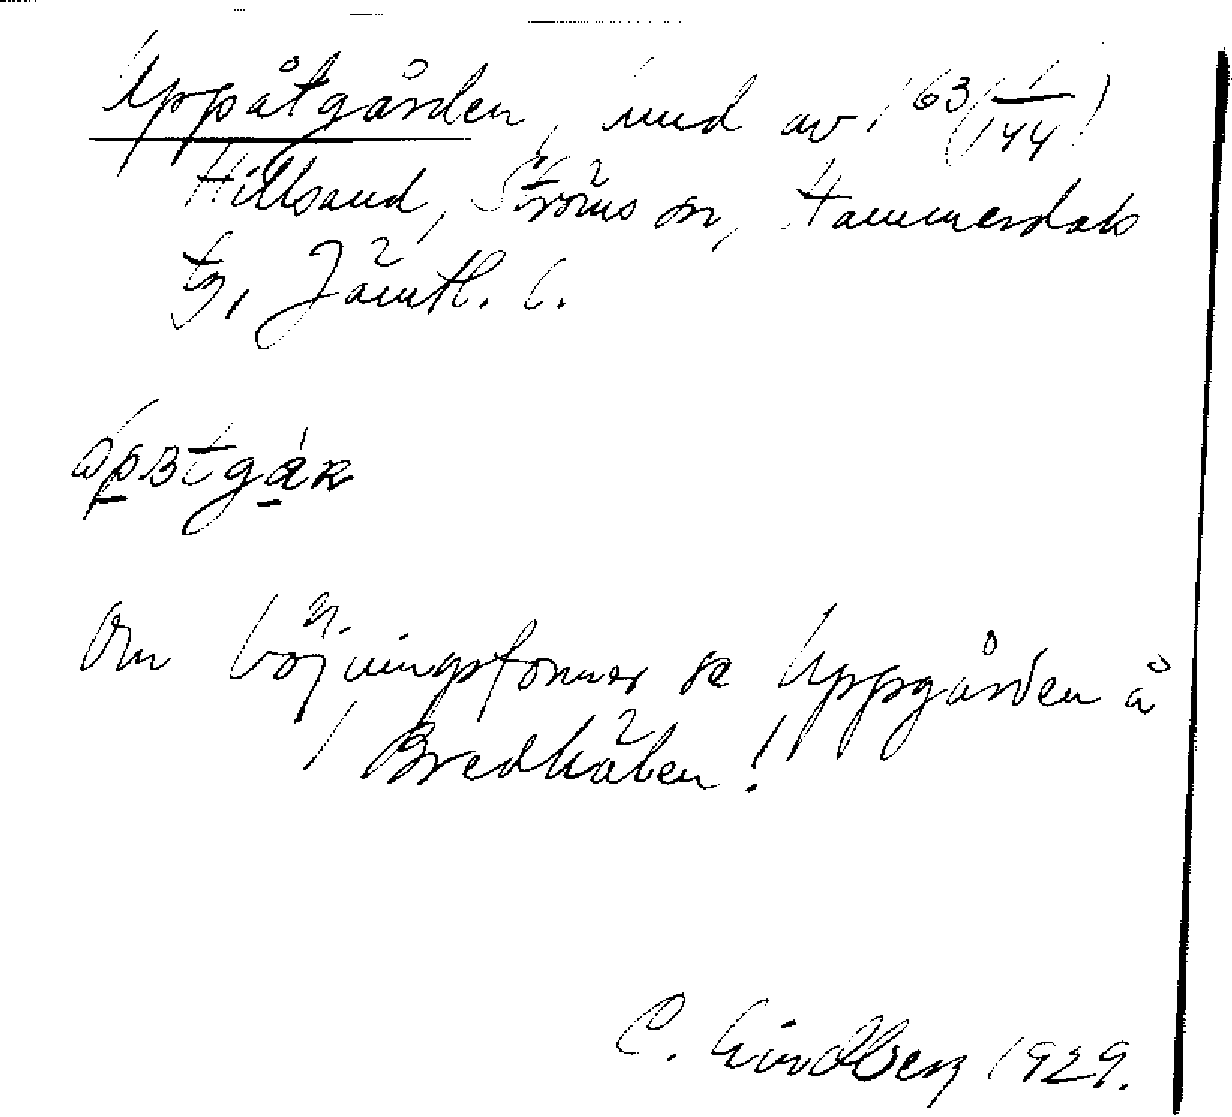 Uppåtgården, und av 163(1/144)
Hillsand, Ströms sn, Hammerdals
tg, Jämtl. l.
Om böjningsformer se Uppgården å
Bredkälen!
C. Lindberg 1929.